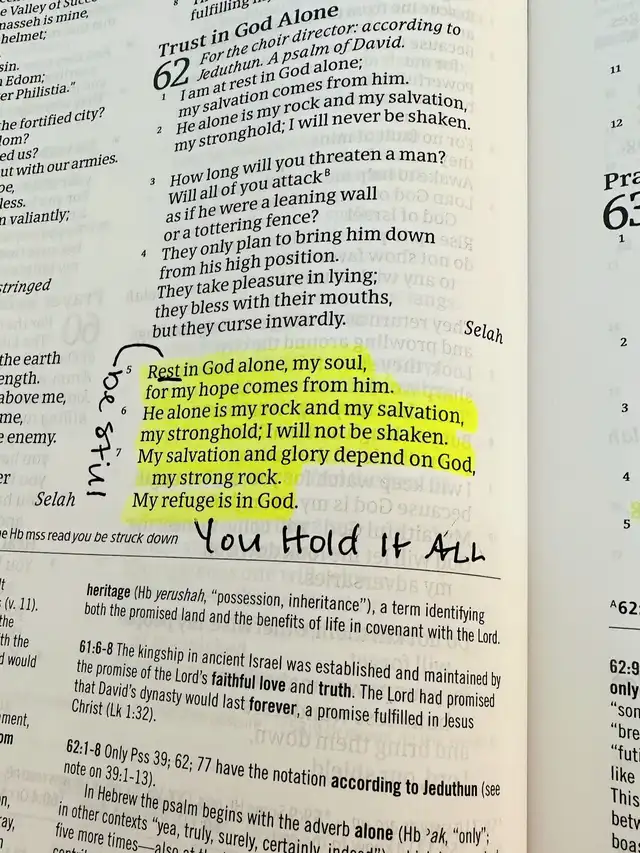 e Valley of Succ
nasseh is mine,
helmet;
sin.
Edom;
er Philistia."
the fortified city?
dom?
ed us?
ut with our armies.
oe,
less.
n valiantly;
stringed
the earth
ength.
above me,
me,
e enemy.
er
Selah
e Hb mss read you be struck down
s (v. 11).
the
th the
d would
ment,
om
on,
ray,
8
fulfilling
Trust in God Alone
62 For the choir director: according to
Jeduthun. A psalm of David.
1 I am at rest in God alone;
my salvation comes from him.
2 He alone is my rock and my salvation,
my stronghold; I will never be shaken.
3 How long will you threaten a man?
Will all of you attack B
as if he were a leaning wall
or a tottering fence?
4 They only plan to bring him down
from his high position.
They take pleasure in lying;
they bless with their mouths,
but they curse inwardly. Selah
be still
5 Rest in God alone, my soul,
for my hope comes from him.
6 He alone is my rock and my salvation,
my stronghold; I will not be shaken.
7 My salvation and glory depend on God,
my strong rock.
My refuge is in God.
You Hold It ALL
heritage (Hb yerushah, "possession, inheritance"), a term identifying
both the promised land and the benefits of life in covenant with the Lord.
61:6-8 The kingship in ancient Israel was established and maintained by
the promise of the Lord's faithful love and truth. The Lord had promised
that David's dynasty would last forever, a promise fulfilled in Jesus
Christ (Lk 1:32).
62:1-8 Only Pss 39; 62; 77 have the notation according to Jeduthun (see
note on 39:1-13).
In Hebrew the psalm begins with the adverb alone (Hb ʾak, "only";
in other contexts "yea, truly, surely, certainly, indeed")
five more times—also at the
11
12
Pra
63
1
2
3
4
5
A 62:
62:9
only
"son
"bre
"futi
like
This
betw
boa